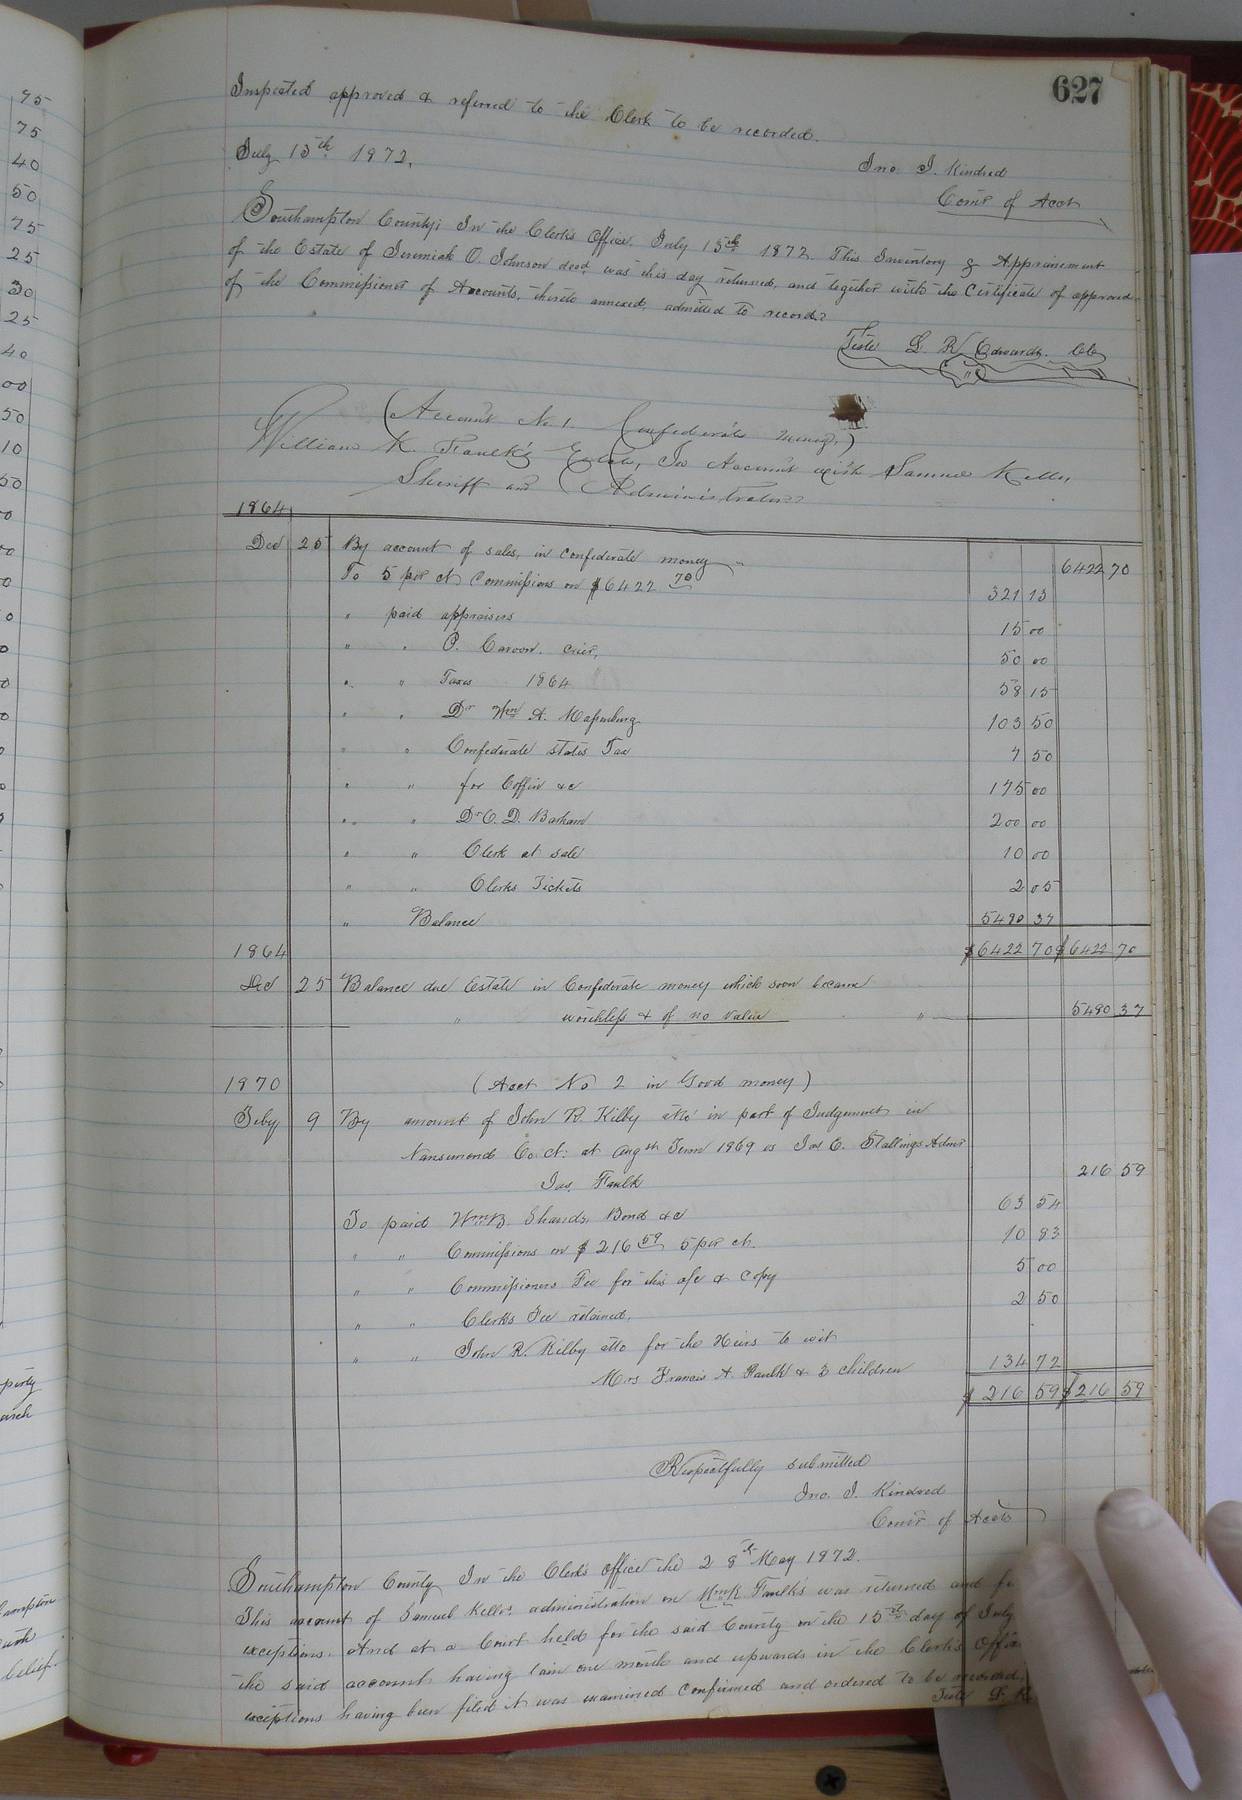 627
Inspected approved & referred to the Clerk to be recorded.
July 15th 1872.
Jno. J. Kindred
Comr of Accts
Southampton County: In the Clerk's Office. July 15th 1872. This Inventory & Appraisement
of the Estate of Jeremiah O. Johnson decd was this day returned, and together with the Certificate of approval
of the Commissioner of Accounts, thereto annexed, admitted to record.
Teste L. R. Edwards. Clk
(Account No. 1. Confederate money,)
William K. Faulk's Estate, In Account with Samuel Kello,
Sheriff and Administrator
1864
Dec 25 By account of sales, in confederate money " 6422 70
To 5 per ct Commissions on $6422 70 321 13
" paid appraisers 15 00
" " P. Carson. crier, 50 00
" " Taxes 1864 58 15
" " Dr Wm A. Massenburg 103 50
" " Confederate states Tax 7 50
" " for Coffin &c 175 00
" " Dr C. D. Barham 200 00
" " Clerk at sale 10 00
" " Clerks Tickets 2 05
" Balance 5480 37
$6422 70 $6422 70
1864
Dec 25 Balance due Estate in Confederate money which soon became
" worthless & of no value " 5480 37
1870 (Acct No 2 in Good money)
Feby 9 By amount of John R. Kilby atto in part of Judgement in
Nansemond Co. Ct: at Augst Term 1869 vs Jas C. Stallings Admr
Jas. Faulk 216 59
To paid Wm B. Shands, Bond &c 63 54
" " Commissions on $216 59 5 per ct. 10 83
" " Commissioners Fee for this a/c & copy 5 00
" " Clerks Fee retained. 2 50
" " John R. Kilby atto for the Heirs to wit
Mrs Francis A Faulk & 3 children 134 72
$ 216 59 $ 216 59
Respectfully submitted
Jno. J. Kindred
Comr of Accts
Southampton County In the Clerk's Office the 28th May 1872.
This account of Samuel Kello's administration on Wm K Faulk's was returned and
exceptions. And at a Court held for the said County on the 15th day of July
the said account having lain one month and upwards in the Clerk's Office
exceptions having been filed it was examined confirmed and ordered to be recorded.
Teste L. R.
95
75
40
50
75
25
30
25
40
00
50
10
50
belief.